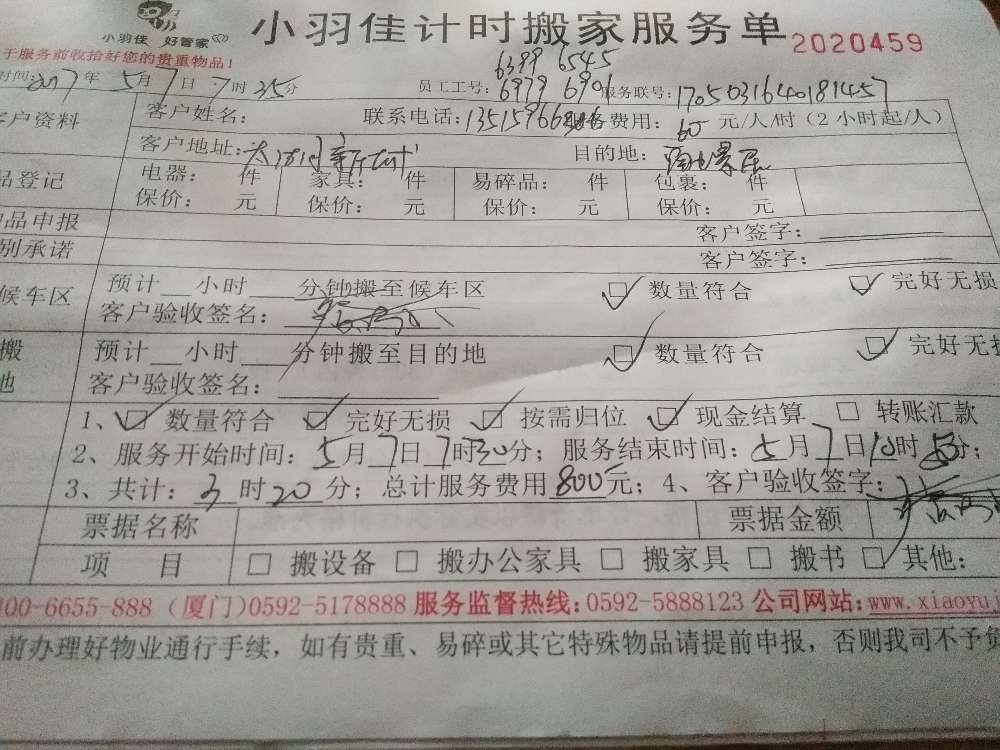 小羽佳 好管家
小羽佳计时搬家服务单 2020459
于服务前收拾好您的贵重物品!
6399 6545
时间:2017年5月7日7时35分 员工工号:6979 6901 服务联号:1705031640181457
客户资料 客户姓名: 联系电话: 服务费用:60元/人/时(2小时起/人)
客户地址: 目的地:
品登记 电器: 件 家具: 件 易碎品: 件 包裹: 件
保价: 元 保价: 元 保价: 元 保价: 元
品申报 客户签字:
别承诺 客户签字:
候车区 预计__小时___分钟搬至候车区 数量符合 完好无损
客户验收签名:
搬 预计__小时___分钟搬至目的地 数量符合 完好无损
地 客户验收签名:
1、数量符合 完好无损 按需归位 现金结算 转账汇款
2、服务开始时间:5月7日7时30分;服务结束时间:5月7日10时50分;
3、共计:3时20分;总计服务费用800元;4、客户验收签字:
票据名称 票据金额
项 目 搬设备 搬办公家具 搬家具 搬书 其他:
00-6655-888(厦门)0592-5178888 服务监督热线:0592-5888123 公司网站:www.xiaoyu
前办理好物业通行手续,如有贵重、易碎或其它特殊物品请提前申报,否则我司不予负